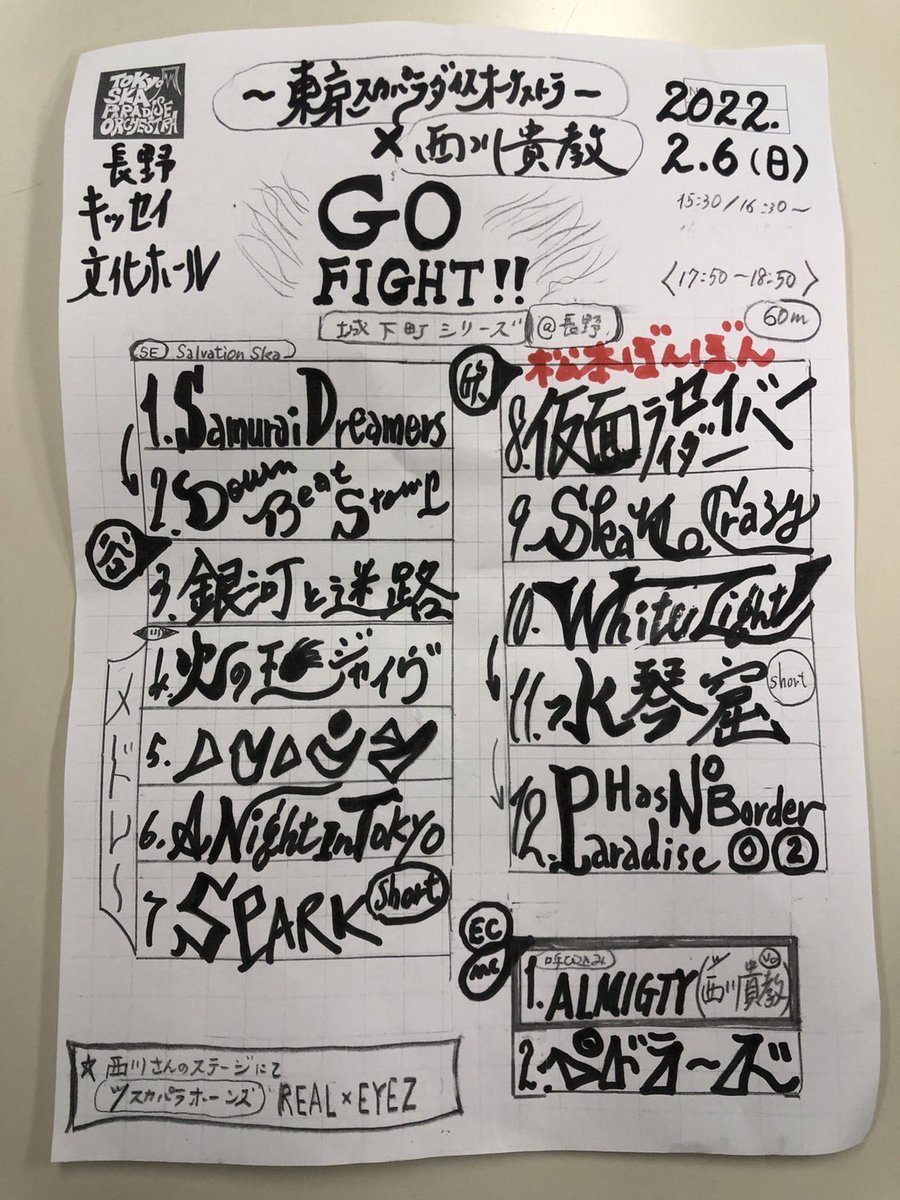 TOKYO
SKA
PARADISE
ORCHESTRA
～東京スカパラダイスオーケストラ～
×西川貴教
2022.
2.6(日)
15:30/16:30～
〈17:50～18:50〉
60m
長野
キッセイ
文化ホール
GO
FIGHT!!
城下町シリーズ @長野
松本ぼんぼん
SE Salvation Ska
1. Samurai Dreamers
2. Down Beat Stomp
3. 銀河と迷路
メドレー
4. 火の玉ジャイヴ
5.
6. A Night In Tokyo
7. SPARK short
8. 仮面ライダーセイバー
9. Skankin' Crazy
10. White Light
11. 水琴窟 short
12. Paradise Has No Border
0 2
EC
MC
呼び込み
1. ALMIGTY (西川貴教 Vo)
2. ペドラーズ
☆西川さんのステージにて
スカパラホーンズ REAL×EYEZ